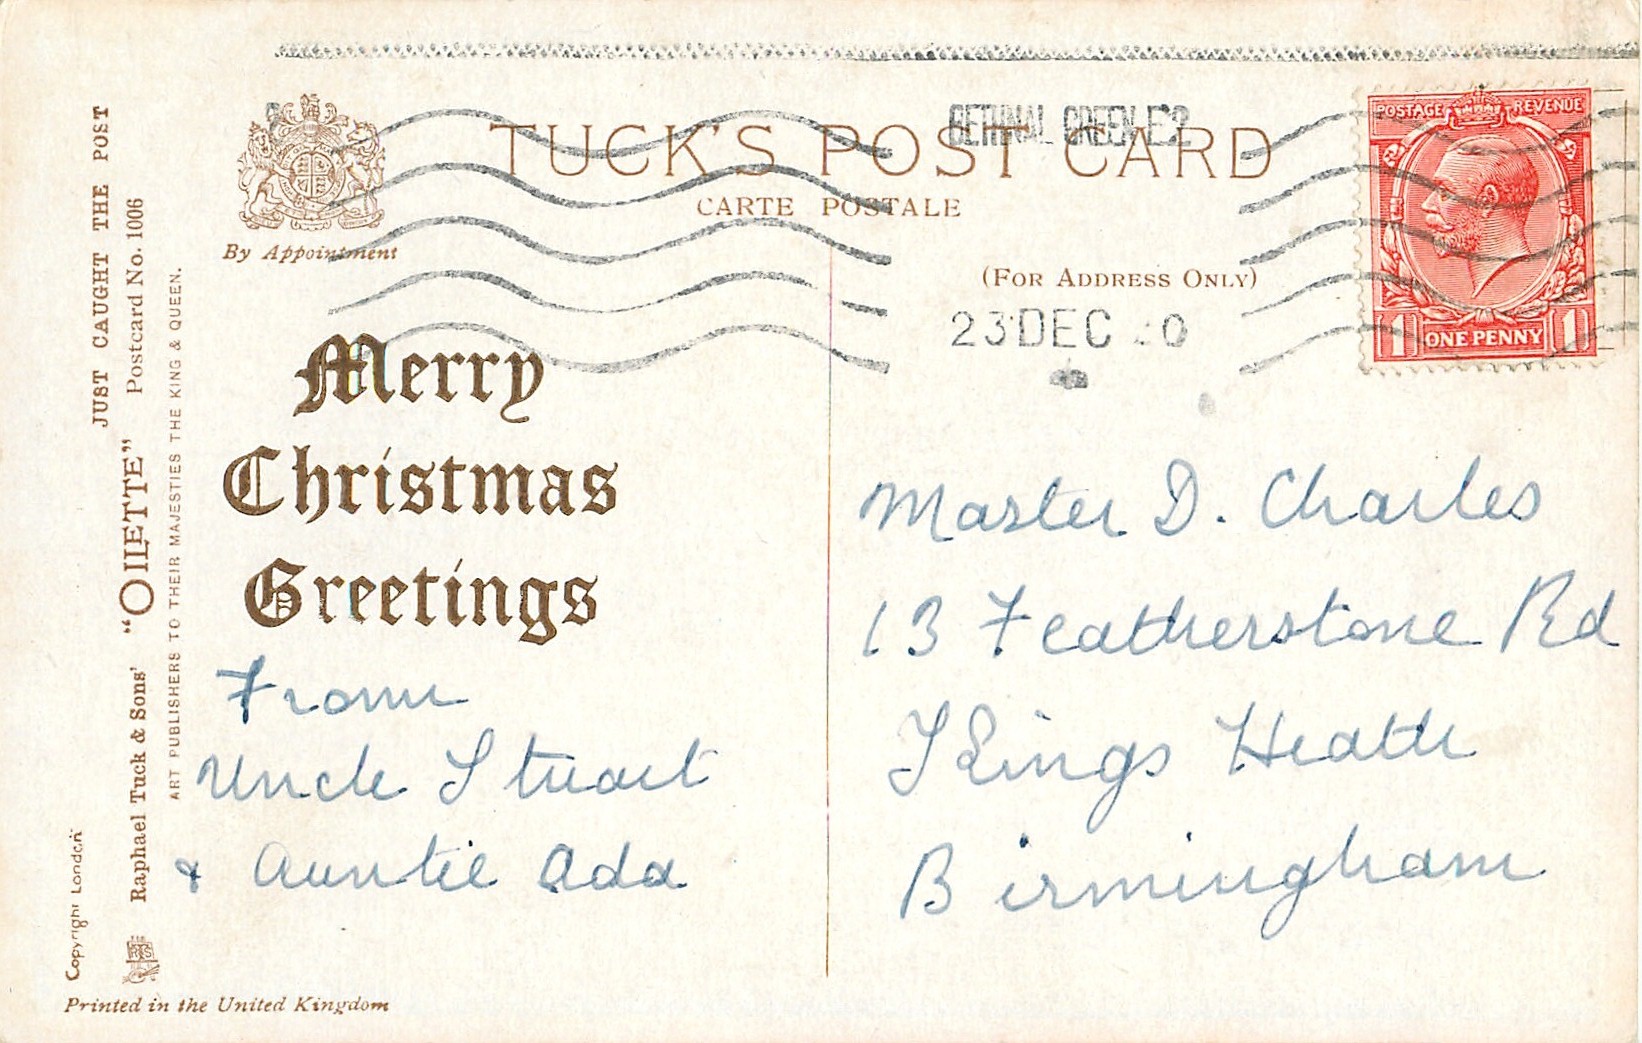 JUST CAUGHT THE POST
Raphael Tuck & Sons' "OILETTE" Postcard No. 1006
ART PUBLISHERS TO THEIR MAJESTIES THE KING & QUEEN.
Copyright London
By Appointment
TUCK'S POST CARD
CARTE POSTALE
(FOR ADDRESS ONLY)
BETHNAL GREEN. E2
23 DEC
POSTAGE REVENUE
1 ONE PENNY 1
Merry
Christmas
Greetings
From
Uncle Stuart
& Auntie Ada
Master D. Charles
13 Featherstone Rd
Kings Heath
Birmingham
Printed in the United Kingdom